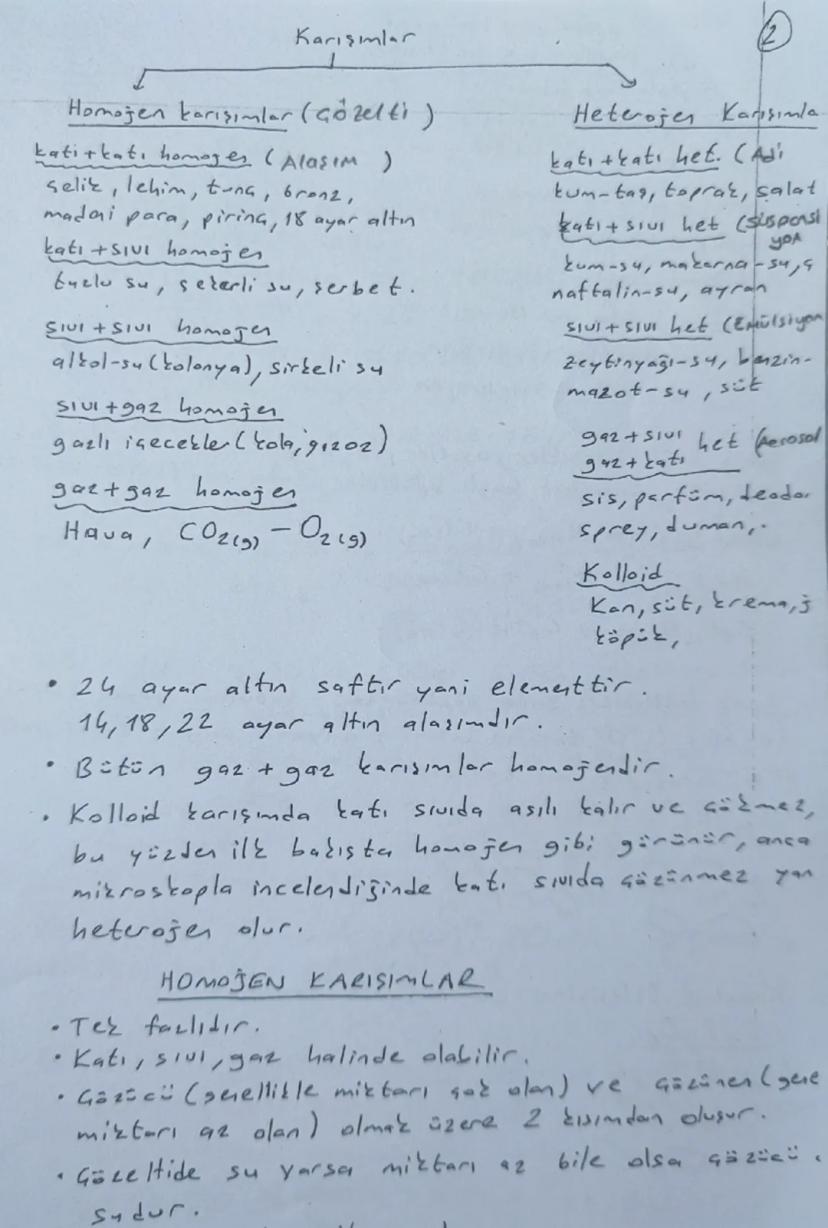 2
Karışımlar
Homojen karışımlar (Çözelti)
katı+katı homojen (Alaşım)
çelik, lehim, tunç, bronz,
madeni para, pirinç, 18 ayar altın
katı+sıvı homojen
tuzlu su, şekerli su, şerbet.
sıvı+sıvı homojen
alkol-su (kolonya), sirkeli su
sıvı+gaz homojen
gazlı içecekler (kola, gazoz)
gaz+gaz homojen
Hava, CO2(g) - O2(g)
Heterojen Karışımla
katı+katı het. (Adi
kum-taş, toprak, salat
katı+sıvı het (süspansi
yon
kum-su, makarna-su, ç
naftalin-su, ayran
sıvı+sıvı het (Emülsiyon
zeytinyağı-su, benzin-
mazot-su, süt
gaz+sıvı
gaz+katı het (Aerosol
sis, parfüm, deodor
sprey, duman,.
Kolloid
Kan, süt, krema, j
köpük,
• 24 ayar altın saftır yani elementtir.
14, 18, 22 ayar altın alaşımdır.
• Bütün gaz + gaz karışımlar homojendir.
• Kolloid karışımda katı sıvıda asılı kalır ve çökmez,
bu yüzden ilk bakışta homojen gibi görünür, anca
mikroskopla incelendiğinde katı sıvıda çözünmez yan
heterojen olur.
HOMOJEN KARIŞIMLAR
• Tek fazlıdır.
• Katı, sıvı, gaz halinde olabilir.
• Çözücü (genellikle miktarı çok olan) ve çözünen (gene
miktarı az olan) olmak üzere 2 kısımdan oluşur.
• Çözeltide su varsa miktarı az bile olsa çözücü
sudur.